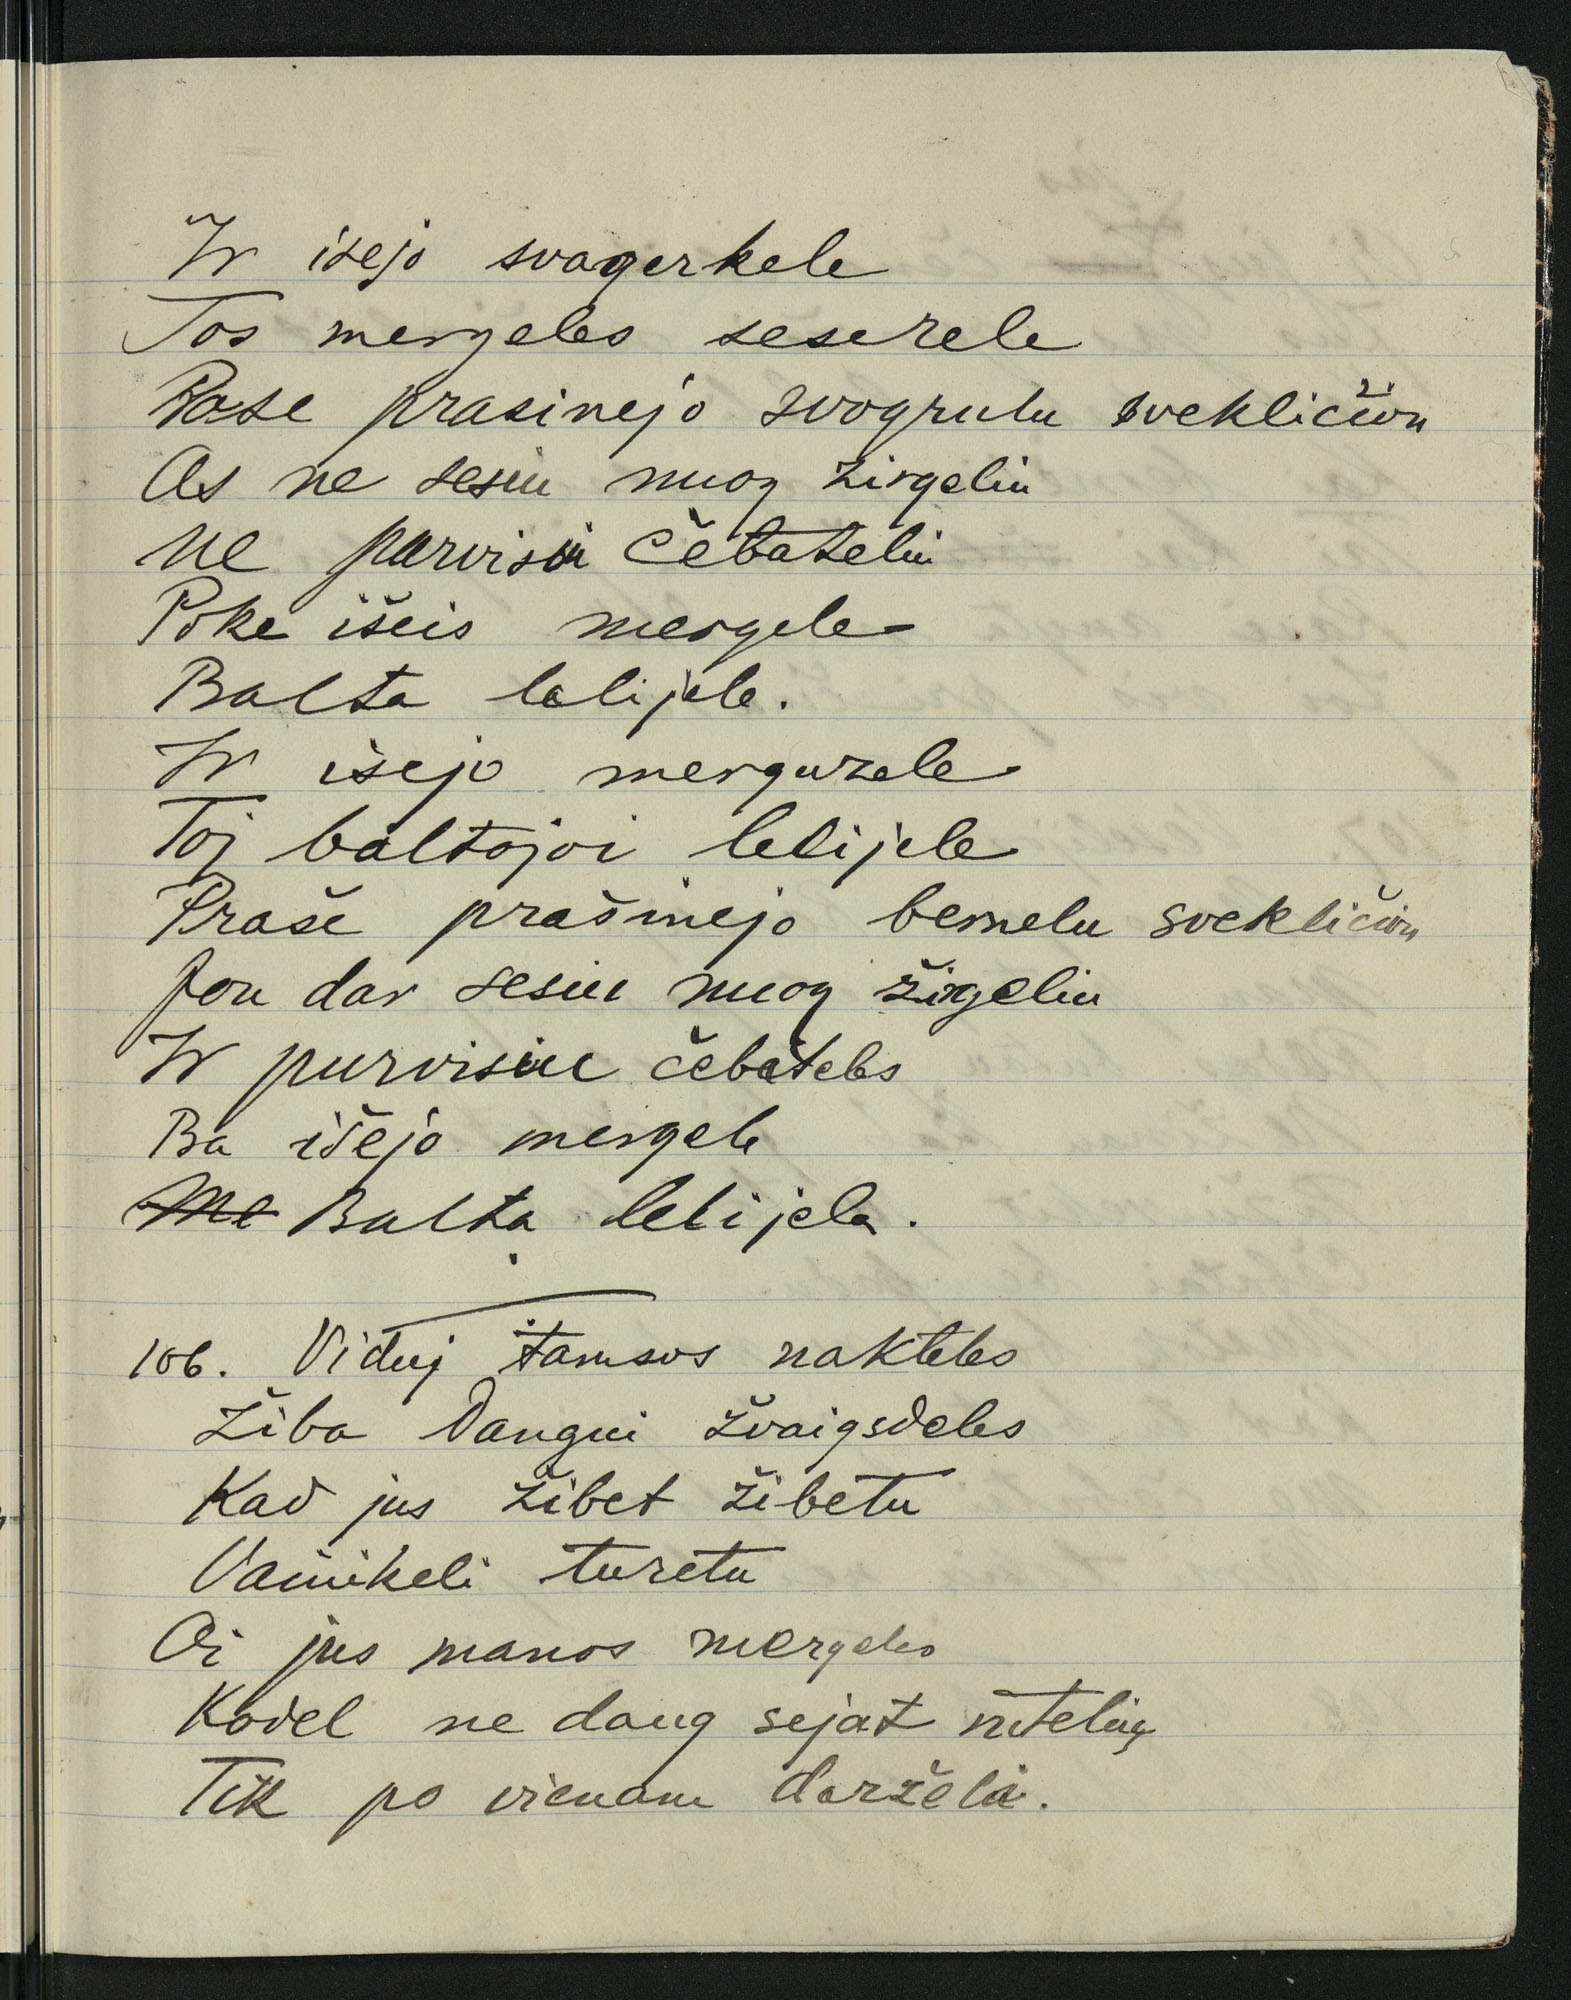 Ir isejo svagerkele
Tos mergeles seserele
Prase prasinejo svogrutu svekličiun
As ne sesiu nuog zirgeliu
ne purvisiu čebateliu
Poke išeis mergele
Balta lelijele.
Ir isejo merguzele
Toj baltojoi lelijele
Praše prašinejo bernelu svekličiun
Jou dar sesiu nuog žirgeliu
Ir purvisiu čebateles
Ba išejo mergele
Me Balta lelijela.
106. Viduj tamsos nakteles
Žiba Dangui žvaigsdeles
Kad jus žibet žibetu
Vainikeli turetu
Oi jus manos mergeles
Kodel ne daug sejat rutelių
Tik po vienam darželi.